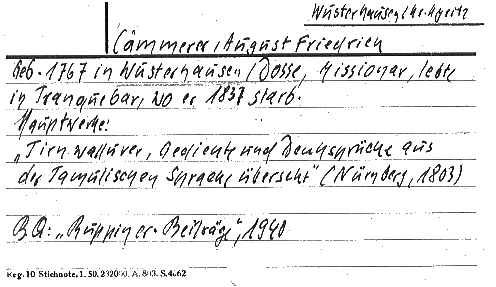 Wusterhausen/Kr. Kyritz
Cämmerer, August Friedrich
Geb. 1767 in Wusterhausen/Dosse, Missionar, lebte
in Tranquebar, wo er 1837 starb.
Hauptwerke:
„Tiruwalluver, Gedichte und Denksprüche aus
der Tamulischen Sprache übersetzt" (Nürnberg, 1803)
B.Q.: „Ruppiner-Beiträge", 1940
Reg. 10 Stichnote, 1. 50. 232000. A. 803. S.4662